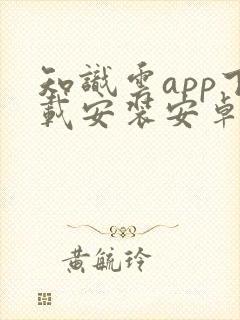 知識雲app下
載安裝安卓
黃毓玲